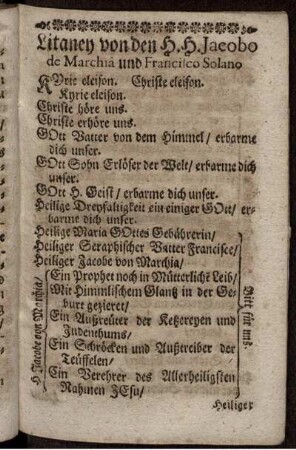 Litaney von den H.H. Jacobo
de Marchiâ und Francisco Solano
KYrie eleison. Christe eleison.
Kyrie eleison.
Christe höre uns.
Christe erhöre uns.
GOtt Vatter von dem Himmel/ erbarme
dich unser.
GOtt Sohn Erlöser der Welt/ erbarme dich
unser.
GOtt H. Geist/ erbarme dich unser.
Heilige Dreyfaltigkeit ein einiger GOtt/ er-
barme dich unser.
Heilige Maria GOttes Gebährerin/
Heiliger Seraphischer Vatter Francisce/
Heiliger Jacobe von Marchia/
Ein Prophet noch in Mütterlichẽ Leib/
Mit Himmlischem Glantz in der Ge-
burt gezieret/
Ein Außreüter der Ketzereyen und
Judenthums/
Ein Schröcken und Außtreiber der
Teüffelen/
Ein Verehrer des Allerheiligsten
Nahmen JEsu/
H. Jacobe von Marchia/
Bitt für uns.
Heiliger